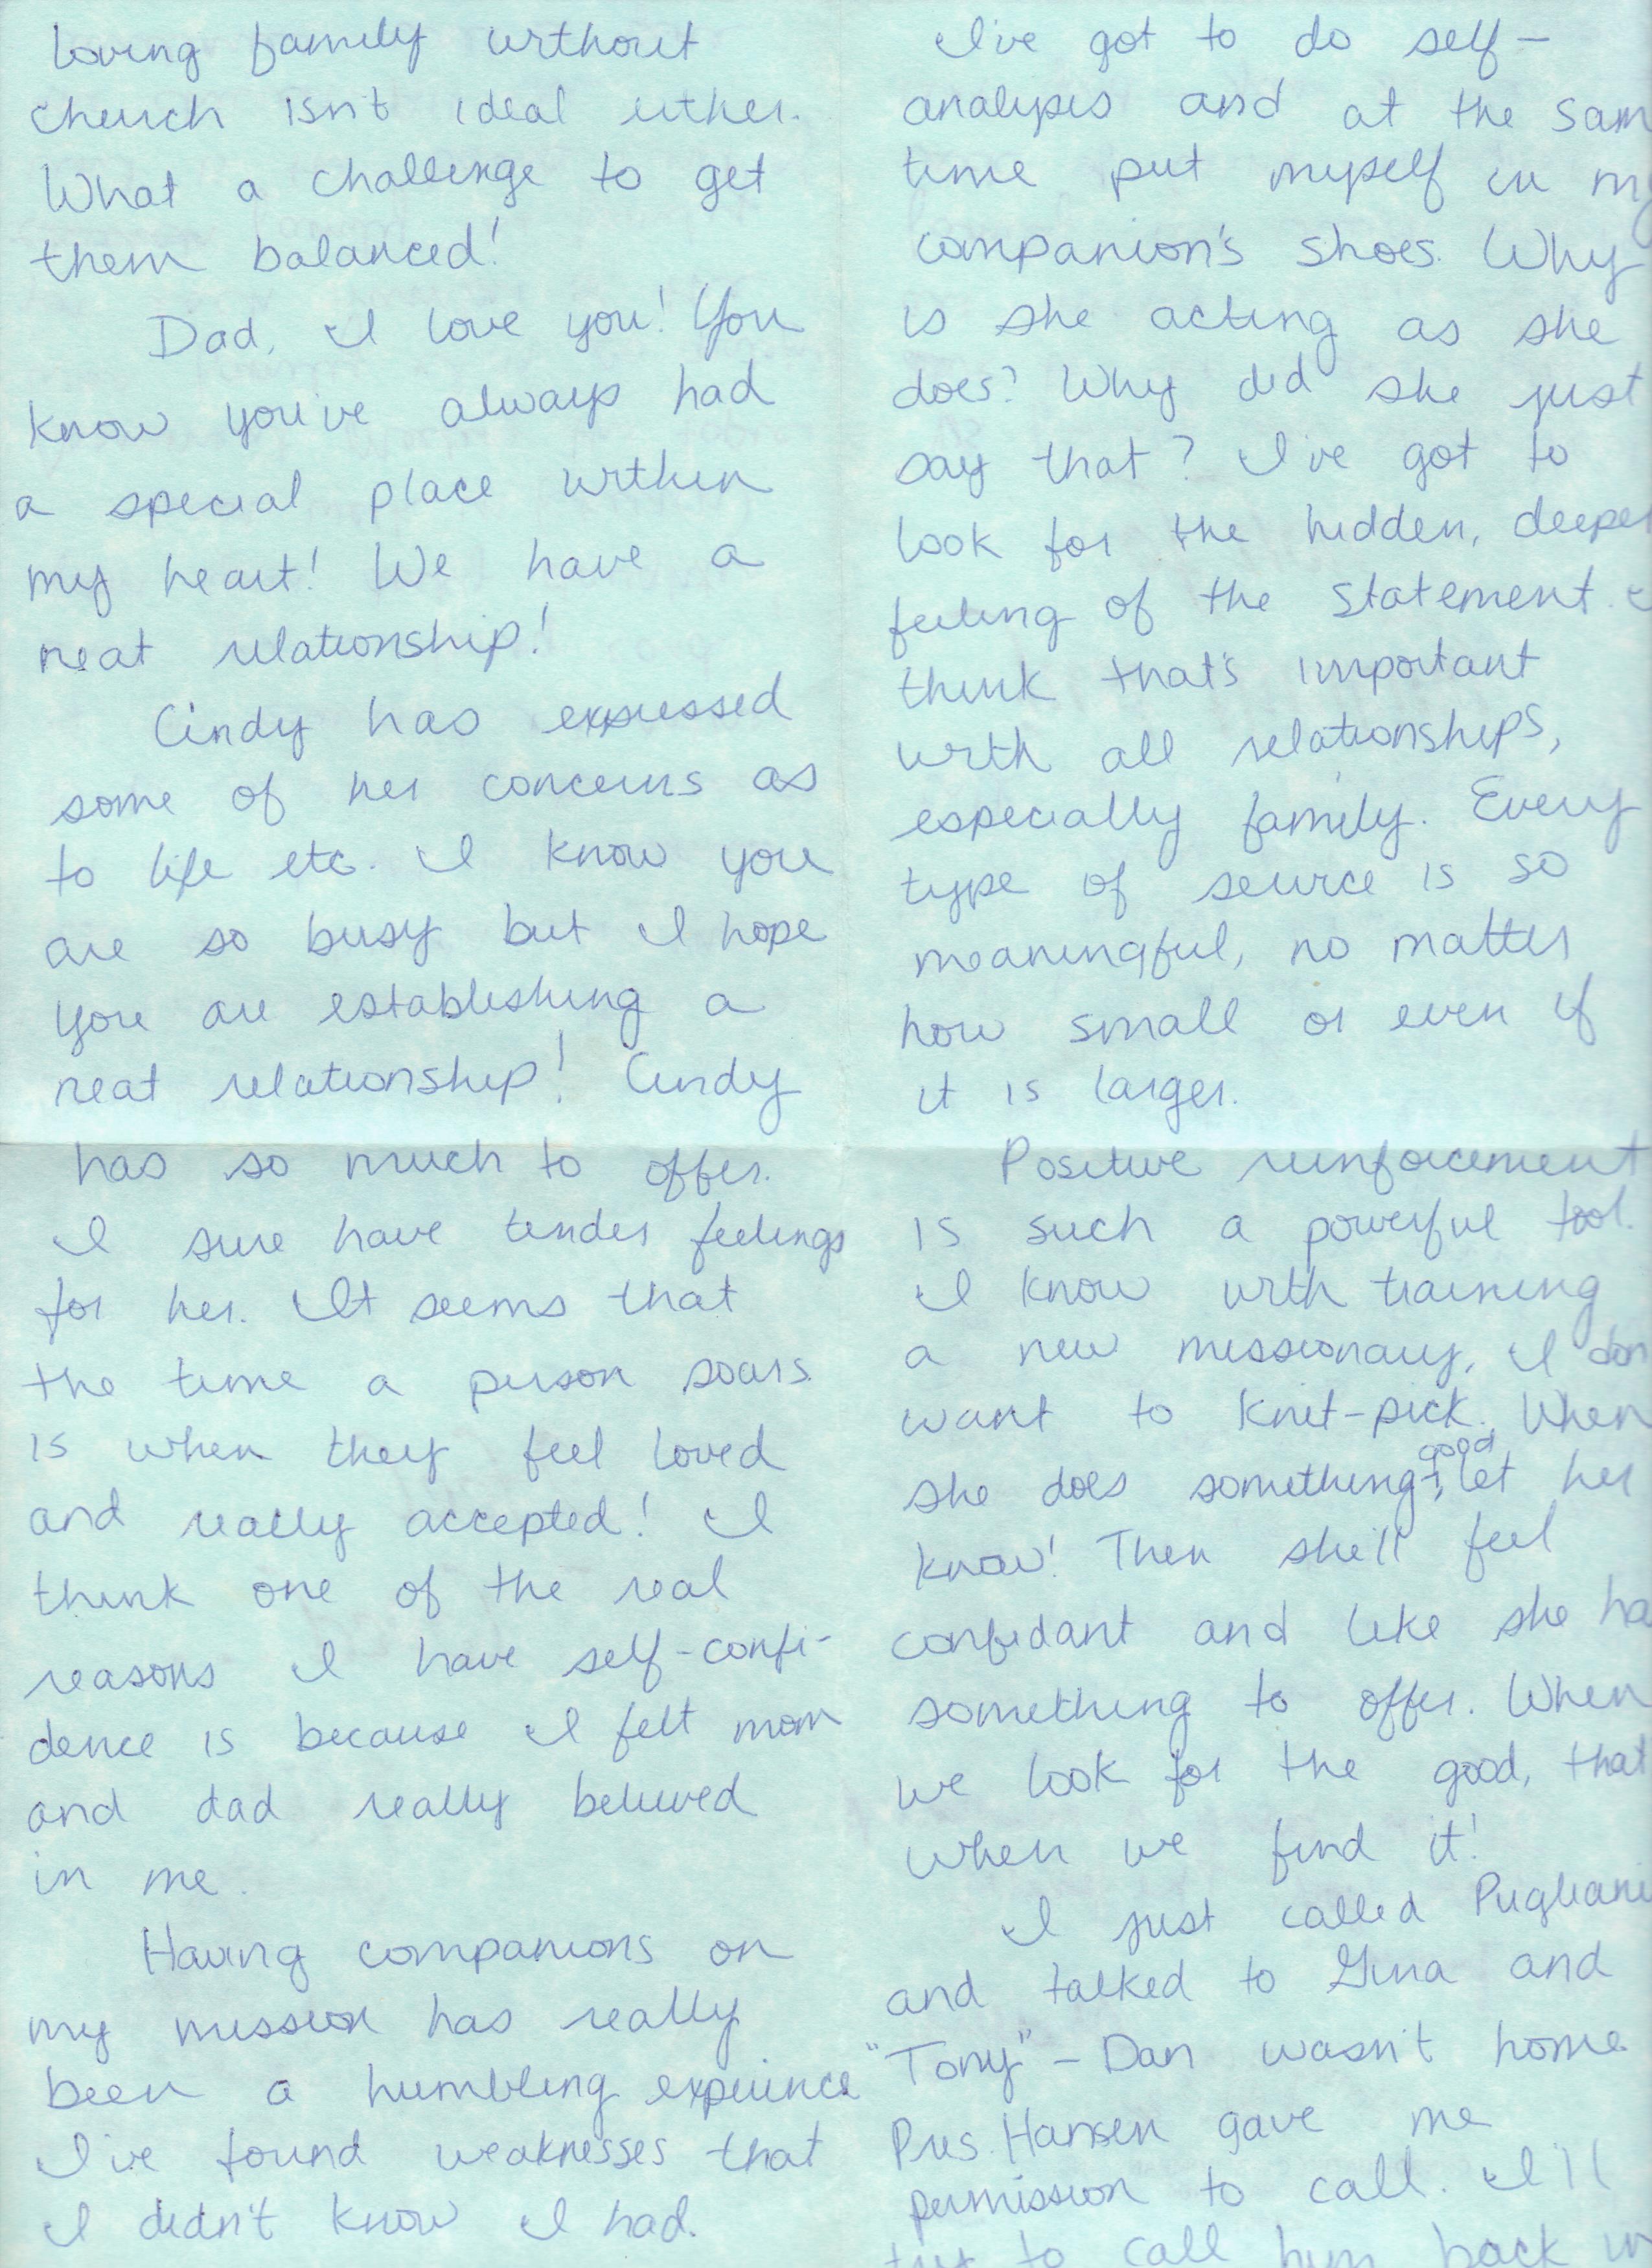 loving family without
church isn't ideal either.
What a challenge to get
them balanced!
Dad, I love you! You
know you've always had
a special place within
my heart! We have a
neat relationship!
Cindy has expressed
some of her concerns as
to life etc. I know you
are so busy but I hope
you are establishing a
neat relationship! Cindy
has so much to offer.
I sure have tender feelings
for her. It seems that
the time a person soars
is when they feel loved
and really accepted! I
think one of the real
reasons I have self-confi-
dence is because I felt mom
and dad really believed
in me.
Having companions on
my mission has really
been a humbling experience
I've found weaknesses that
I didn't know I had.
I've got to do self-
analysis and at the sam
time put myself in my
companion's shoes. Why
is she acting as she
does? Why did she just
say that? I've got to
look for the hidden, deeper
feeling of the statement. I
think that's important
with all relationships,
especially family. Every
type of service is so
meaningful, no matter
how small or even if
it is larger.
Positive reinforcement
is such a powerful tool.
I know with training
a new missionary, I don
want to knit-pick. When
she does something good, let her
know! Then she'll feel
confidant and like she ha
something to offer. When
we look for the good, that
when we find it!
I just called Pugliani
and talked to Gina and
"Tony" - Dan wasn't home.
Pres. Hansen gave me
permission to call. I'll
try to call him back